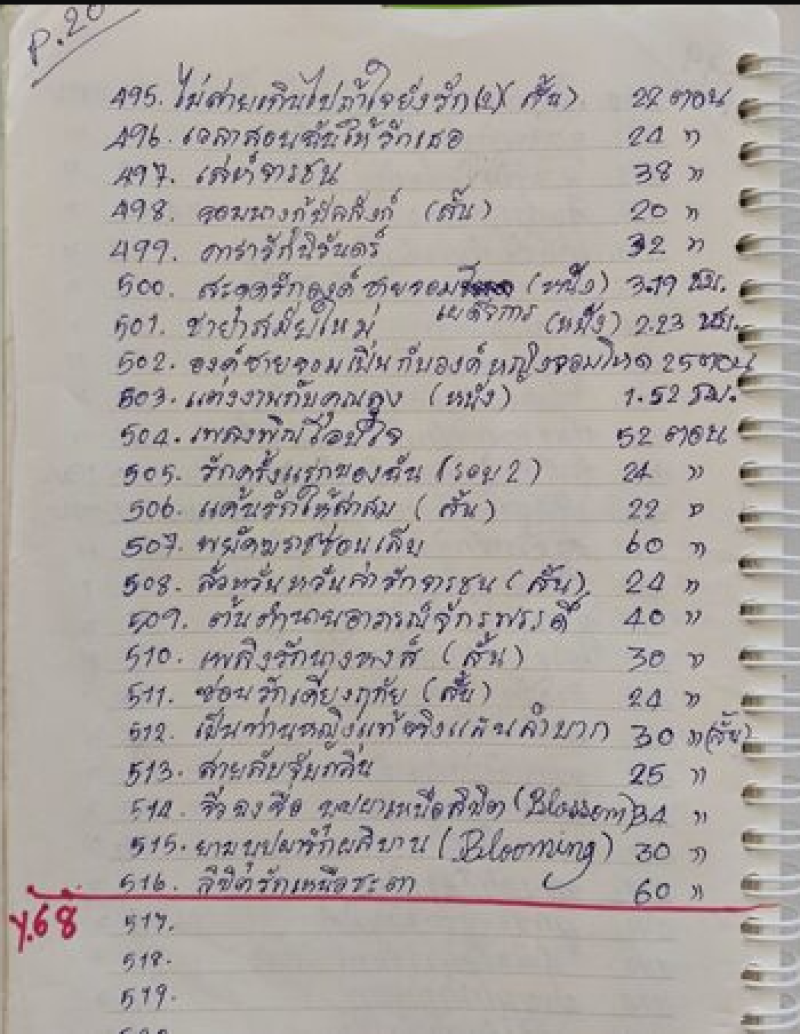 P.20
495. ไม่สายเกินไปถ้าใจยังรัก(2)(สั้น) 22 ตอน
496. เวลาสอนฉันให้รักเธอ 24 "
497. เล่ห์จารชน 38 "
498. จอมนาง (สั้น) 20 "
499. ดารารักนิรันดร์ 32 "
500. สะดุดรักองค์ชายจอม (หนัง) 3.19 ชม.
เผด็จการ
501. ชาย่าสมัยใหม่ (หนัง) 2.23 ชม.
502. องค์ชายจอมเนิ่นกับองค์หญิงจอมโหด 25 ตอน
503. แต่งงานกับคุณลุง (หนัง) 1.52 ชม.
504. เพลงพิณใจ 52 ตอน
505. รักครั้งแรกของฉัน (รอบ 2) 24 "
506. แค้นรักให้สาสม (สั้น) 22 "
507. พยัคฆราชซ่อนเล็บ 60 "
508. ลั่วหวั่นหวันล่ารักจารชน (สั้น) 24 "
509. ต้นตำนานอาภรณ์จักรพรรดิ์ 40 "
510. เพลิงรักนางหงส์ (สั้น) 30 "
511. ซ่อนรักเคียงฤทัย (สั้น) 24 "
512. เป็นท่านหญิงแท้จริงแสนลำบาก 30 " (สั้น)
513. สายลับจับกลิ่น 25 "
514. จิ่วฉงจื่อ บุปผาเหนือลิขิต (Blossom) 34 "
515. ยามบุปผารักผลิบาน (Blooming) 30 "
516. ลิขิตรักเหนือชะตา 60 "
Y.68
517.
518.
519.